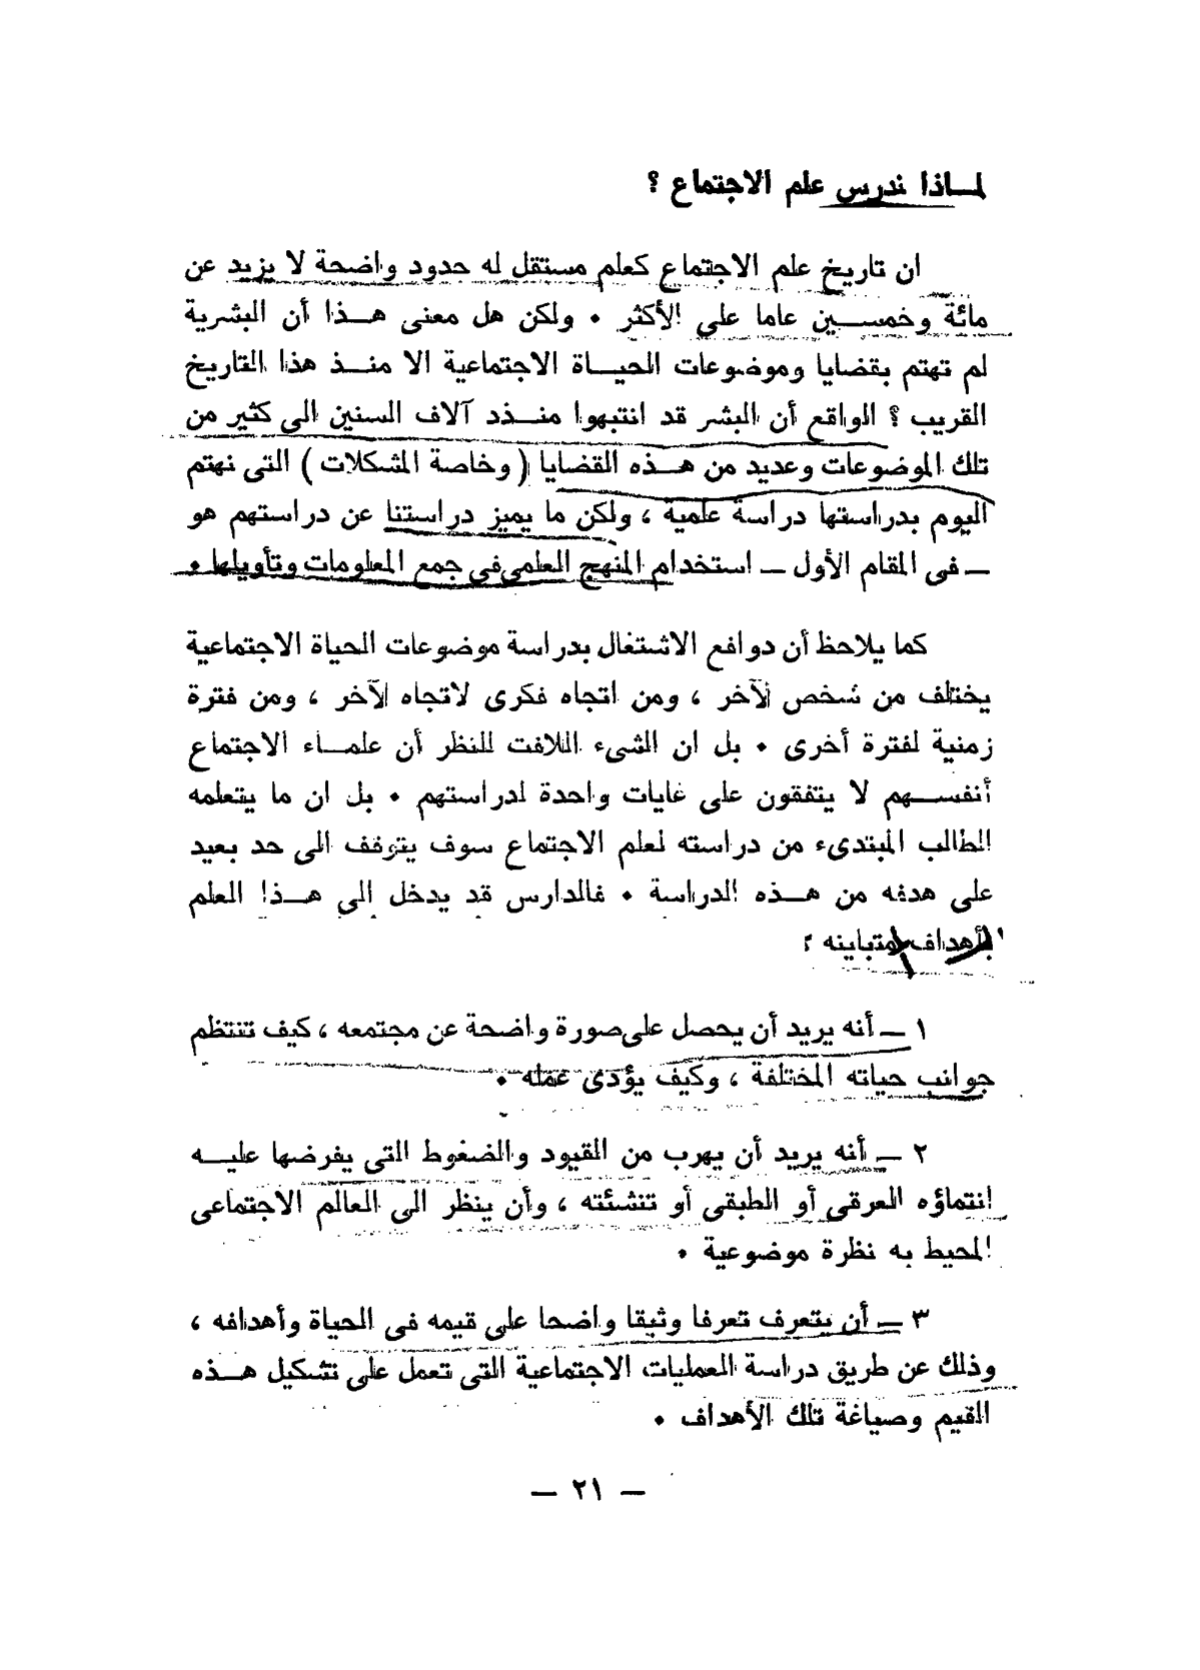 لمــاذا ندرس علم الاجتماع ؟
ان تاريخ علم الاجتماع كعلم مستقل له حدود واضحة لا يزيد عن
مائة وخمســين عاما على الأكثر ٠ ولكن هل معنى هــذا أن البشرية
لم تهتم بقضايا وموضوعات الحيــاة الاجتماعية الا منــذ هذا التاريخ
القريب ؟ الواقع أن البشر قد انتبهوا منــذد آلاف السنين الى كثير من
تلك الموضوعات وعديد من هــذه القضايا ( وخاصة المشكلات ) التى نهتم
اليوم بدراستها دراسة علمية ، ولكن ما يميز دراستنا عن دراستهم هو
ــ فى المقام الأول ــ استخدام المنهج العلمى فى جمع المعلومات وتأويلها ٠
كما يلاحظ أن دوافع الاشتغال بدراسة موضوعات الحياة الاجتماعية
يختلف من شخص لآخر ، ومن اتجاه فكرى لاتجاه لآخر ، ومن فترة
زمنية لفترة أخرى ٠ بل ان الشىء اللافت للنظر أن علمــاء الاجتماع
أنفســهم لا يتفقون على غايات واحدة لدراستهم ٠ بل ان ما يتعلمه
الطالب المبتدىء من دراسته لعلم الاجتماع سوف يتوقف الى حد بعيد
على هدفه من هــذه الدراسة ٠ فالدارس قد يدخل الى هــذا العلم
بأهداف متباينه :
١ ــ أنه يريد أن يحصل على صورة واضحة عن مجتمعه ، كيف تنتظم
جوانب حياته المختلفة ، وكيف يؤدى عمله ٠
٢ ــ أنه يريد أن يهرب من القيود والضغوط التى يفرضها عليــه
انتماؤه العرقى أو الطبقى أو تنشئته ، وأن ينظر الى العالم الاجتماعى
المحيط به نظرة موضوعية ٠
٣ ــ أن يتعرف تعرفا وثيقا واضحا على قيمه فى الحياة وأهدافه ،
وذلك عن طريق دراسة العمليات الاجتماعية التى تعمل على تشكيل هــذه
القيم وصياغة تلك الأهداف ٠
ــ ٢١ ــ